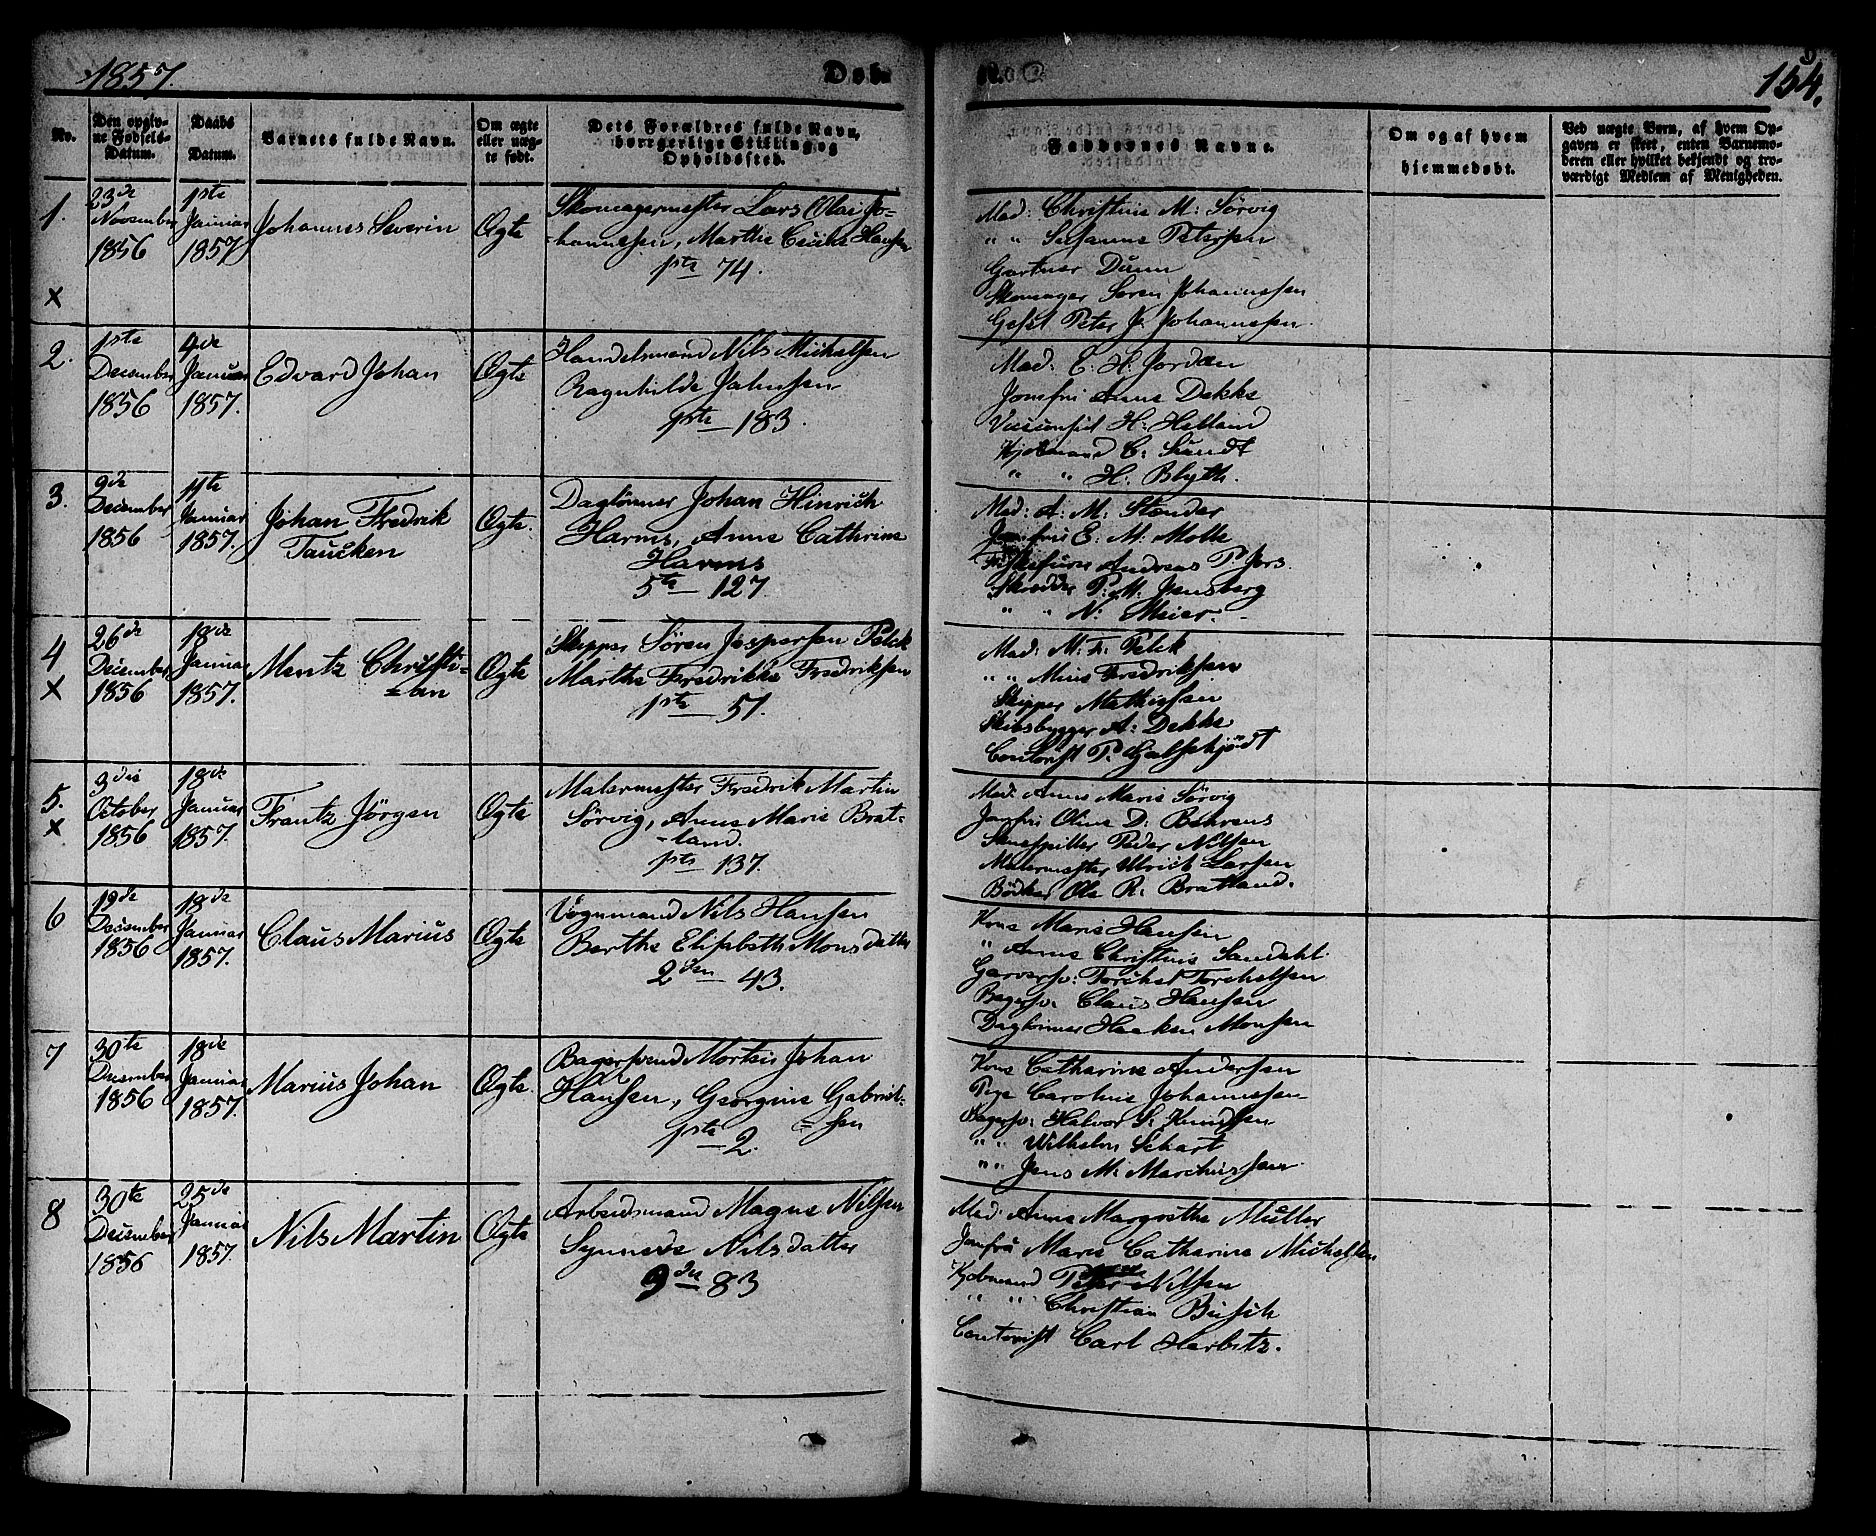 1857.
Døb-
154.
No.
Den opgiv-
ne Fødsels-
Datum.
Daabs
Datum.
Barnets fulde Navn.
Om ægte
eller uæg-
te født.
Dets Forældres fulde Navn,
borgerlige Stilling og
Opholdssted.
Faddernes Navne.
Om og af hvem
hjemmedøbt.
Ved uægte Børn, af hvem Op-
gaven er skeet, enten Barnemo-
deren eller hvilket bekjendt og tro-
værdigt Medlem af Menigheden.
1.
x
23de
November
1856
1ste
Januar
1857
Johannes Severin
Ægte
Skomagermester Lars Olai Jo-
hannessen, Marthe Hansen
1ste 74.
Mad: Christine M: Sørvig
" " Susanne Petersen
Gartner Dünn
Skomager Søren Johannessen
Peter J. Johannessen
2.
1ste
December
1856
4de
Januar
1857.
Edvard Johan
Ægte
Handelsmand Nils Michelsen
Ragnhilde Jahnsen
1ste 183.
Mad. E. H. Jordan
Jomfru Anne Dekke
H: Helland
Kjøbmand C: Sundt
" " H. Blyth.
3.
9de
December
1856
11te
Januar
1857.
Johan Fredrik
Taucken
Ægte.
Daglønner Johan Hinrich
Harms, Anne Cathrine
Harms
5te 127
Mad: A: M: Stender
Jomfru E. M. Molte
Andreas P. Jørs.
Skrædder P: M. Jensberg
" " N: Meier.
4
x
26de
December
1856
18de
Januar
1857.
Mentz Christi-
an
Ægte
Skipper Sören Jespersen Pelck
Marthe Fredrikke Fredriksen
1ste 51.
Mad. M. F. Pelck
" " Mine Fredriksen
Skipper Mathiesen
Skibsbygger A: Dekke
Contorist P. Galschjødt
5.
x
3die
October
1856
18de
Januar
1857.
Frantz Jörgen
Ægte
Malermester Fredrik Martin
Sørvig, Anne Marie Brat-
land.
1ste 137.
Mad. Anne Marie Sørvig
Jomfru Oline D: Behrens
Peder Nilsen
Malermester Ulrich Larsen
Bödker Ole R. Bratland.
6
19de
December
1856
18de
Januar
1857.
Claus Marius
Ægte
Vognmand Nils Hansen
Berthe Elisabeth Monsdatter
2den 43.
Kone Marie Hansen
" Anne Christine Sandahl.
Garversv: Torchel Torchelsen
Bagersv: Claus Hansen
Daglønner Haaken Monsen
7
30te
December
1856
18de
Januar
1857.
Marius Johan
Ægte.
Bagersvend Morten Johan
Hansen, Georgine Gabriel-
sen
1ste 2.
Kone Catharine Andersen
Pige Caroline Johannessen
Bagersv: Halvor S: Knudsen
" " Wilhelm Schart
" " Jens M. Marchussen
8
30te
December
1856
25de
Januar
1857.
Nils Martin
Ægte
Arbeidsmand Magne Nilsen
Synneve Nilsdatter
9de 83
Mad. Anne Margrethe Müller
Jomfru Marie Catharine Michelsen
Kjøbmand Peter Nilsen
" " Christian Büsch
Contorist Carl Herbitz.